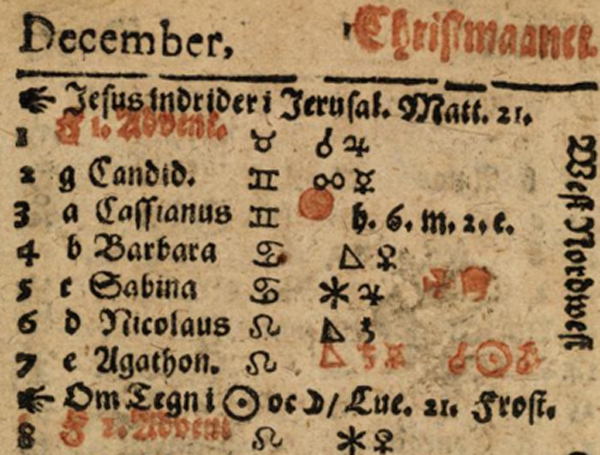 December, Christmaanet.
☛ Jesus indrider i Jerusal. Matt. 21.
1 F 1. Advent. ♉ ☌ ♃
2 g Candid. ♊ ☍ ☿
3 a Cassianus ♊ h. 6. m. 2. e.
4 b Barbara ♋ △ ♀
5 c Sabina ♋ ✶ ♃
6 d Nicolaus ♌ △ ♄
7 e Agathon. ♌ △
☛ Om Tegn i ☉ oc ☽/ Luc. 21. Frost.
8 F 2. Advent ♌ ✶ ♀
Vest Nordwest